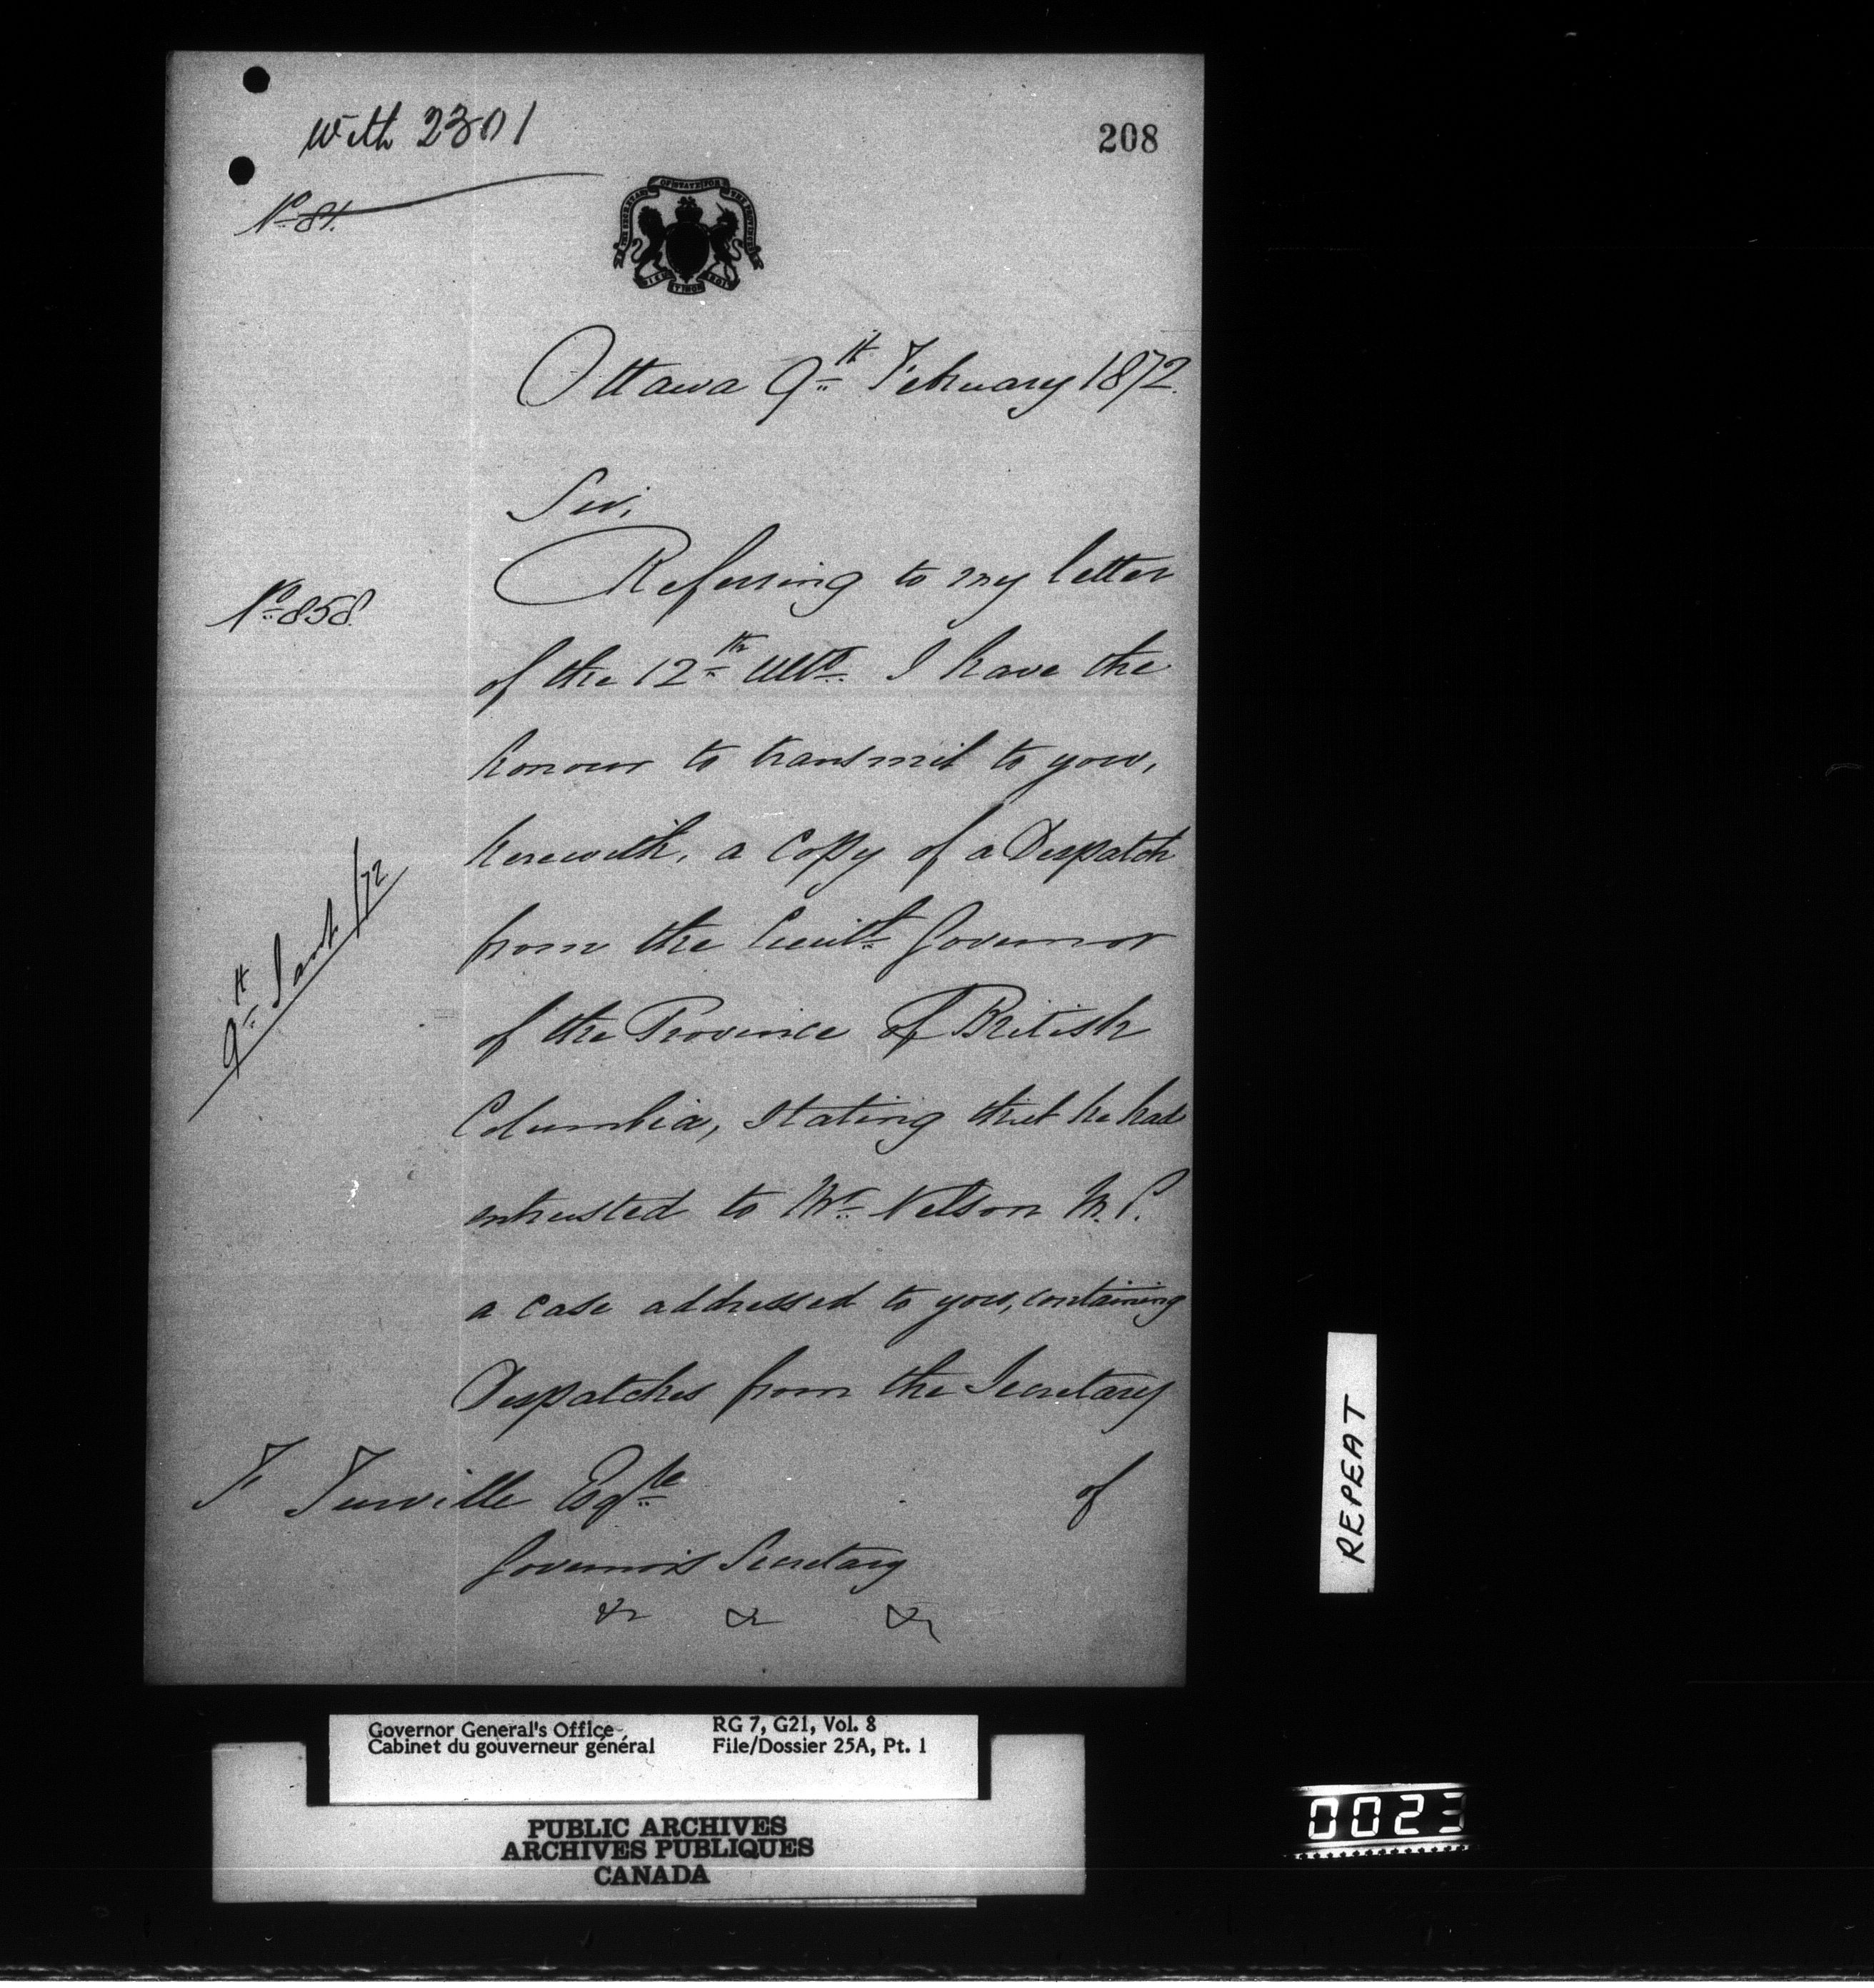 with 2301
208
No 81.
Ottawa 9th February 1872.
Sir,
Referring to my letter
No 858.
of the 12th Ulto. I have the
honour to transmit to you,
herewith, a Copy of a Despatch
9th Jany /72
from the Lieutt Governor
of the Province of British
Columbia, stating that he had
entrusted to Mr. Nelson M.P.
a case addressed to you, containing
Despatches from the Secretary
of
F Turville Esqre
Governor's Secretary
&c &c &c
REPEAT
Governor General's Office
Cabinet du gouverneur général
RG 7, G21, Vol. 8
File/Dossier 25A, Pt. 1
PUBLIC ARCHIVES
ARCHIVES PUBLIQUES
CANADA
0023